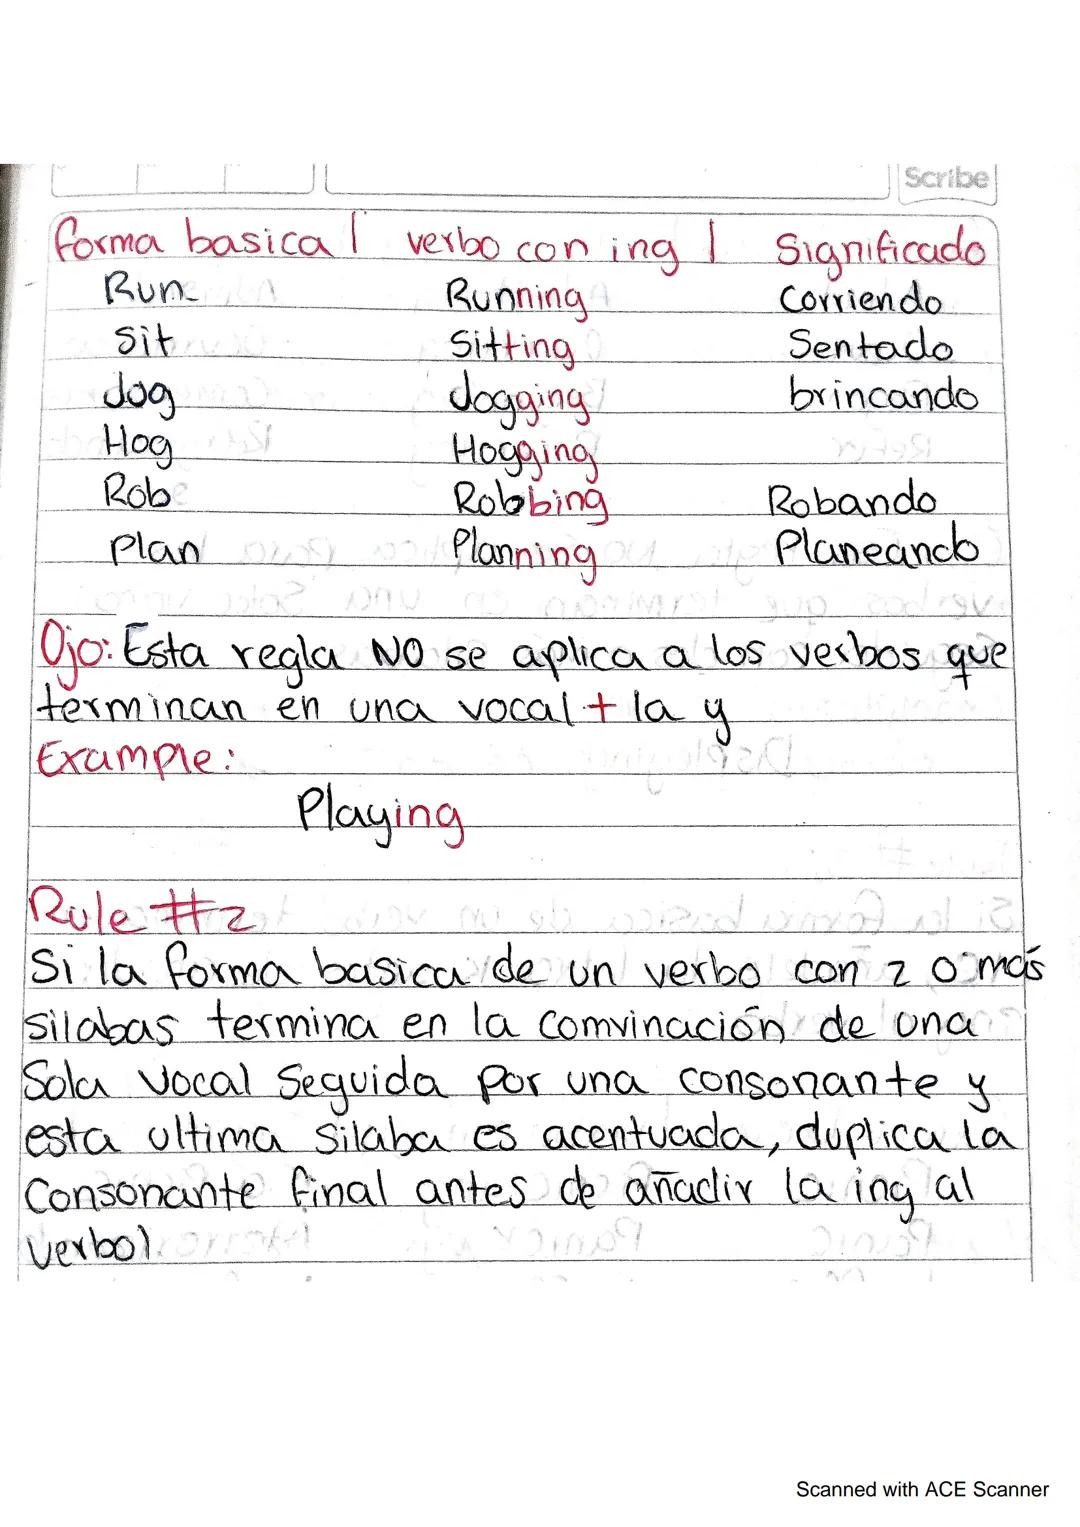 Scribe
forma basica | verbo con ing | Significado
Run Running Corriendo
Sit Sitting Sentado
Jog Jogging brincando
Hog Hogging
Rob Robbing Robando
Plan Planning Planeando
Ojo: Esta regla NO se aplica a los verbos que
terminan en una vocal + la y
Example:
Playing
Rule #2
Si la forma basica de un verbo con 2 o más
silabas termina en la comvinación de una
Sola vocal seguida por una consonante y
esta ultima silaba es acentuada, duplica la
Consonante final antes de añadir la ing al
verbo).
Scanned with ACE Scanner